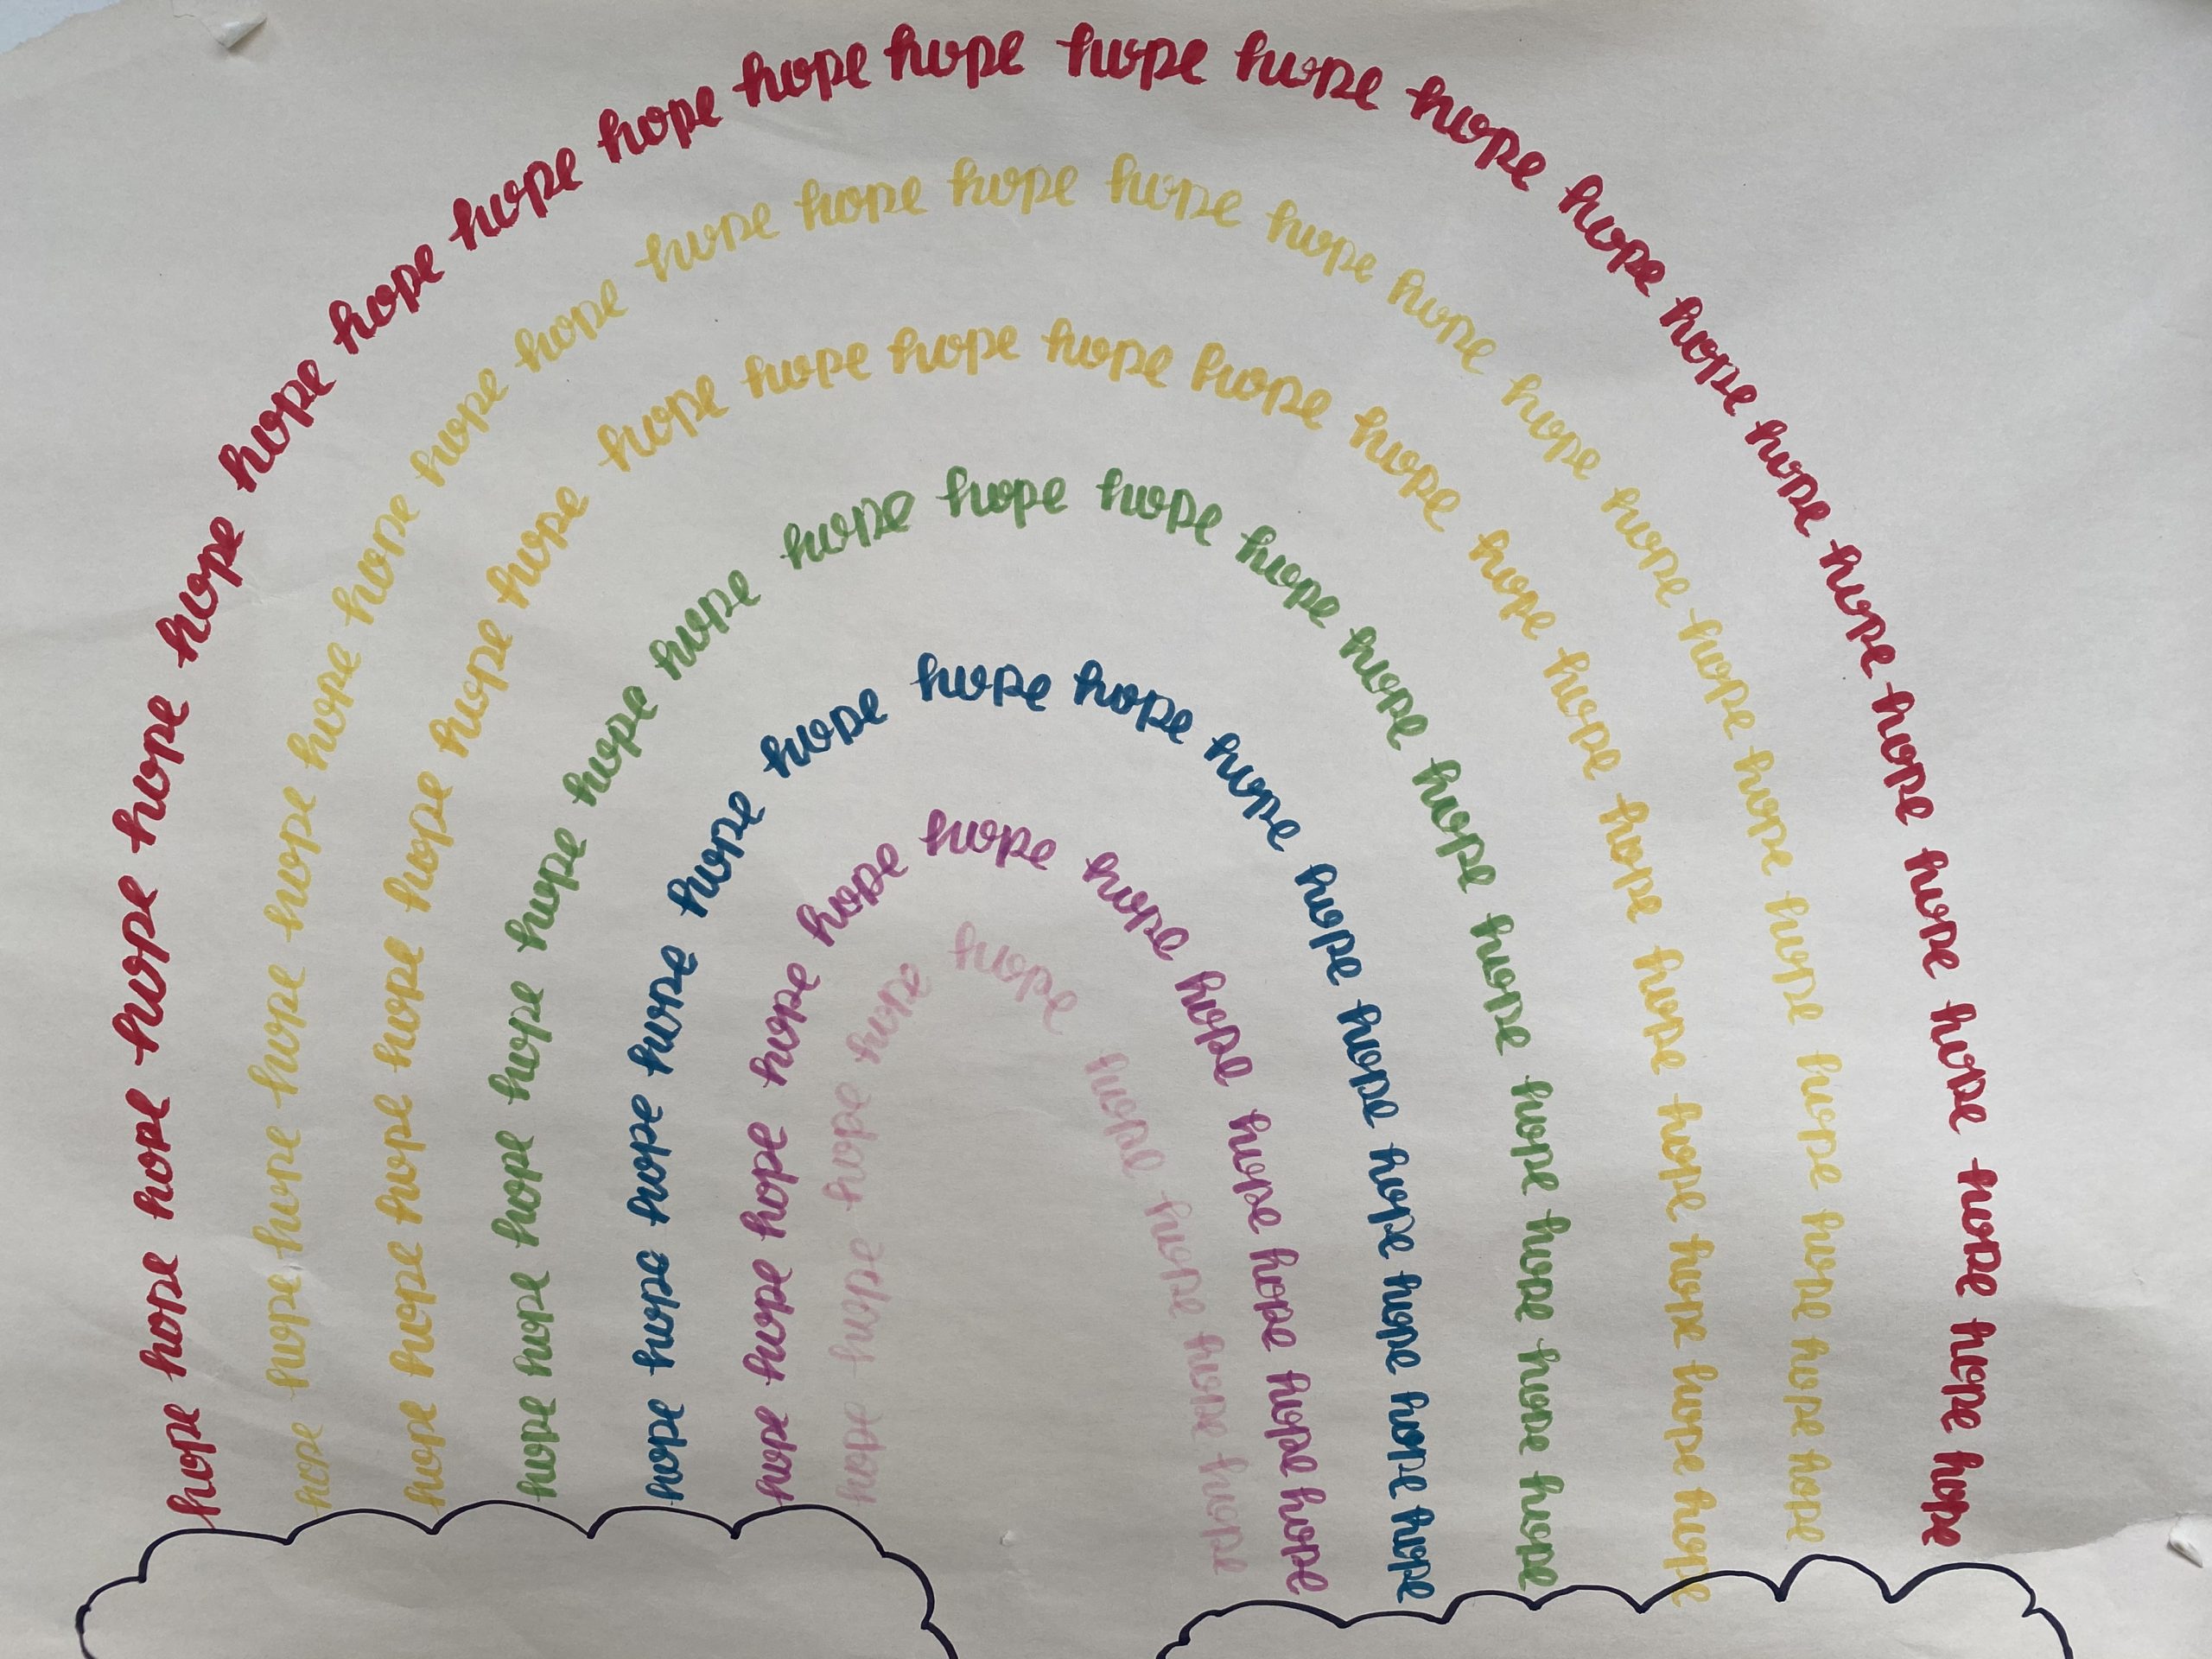 hope hope hope hope hope hope hope hope hope hope hope hope hope hope hope hope hope hope hope hope hope hope hope hope hope
hope hope hope hope hope hope hope hope hope hope hope hope hope hope hope hope hope hope hope hope hope hope hope hope
hope hope hope hope hope hope hope hope hope hope hope hope hope hope hope hope hope hope hope hope hope
hope hope hope hope hope hope hope hope hope hope hope hope hope hope hope hope hope hope
hope hope hope hope hope hope hope hope hope hope hope hope hope hope hope
hope hope hope hope hope hope hope hope hope hope hope hope
hope hope hope hope hope hope hope hope hope